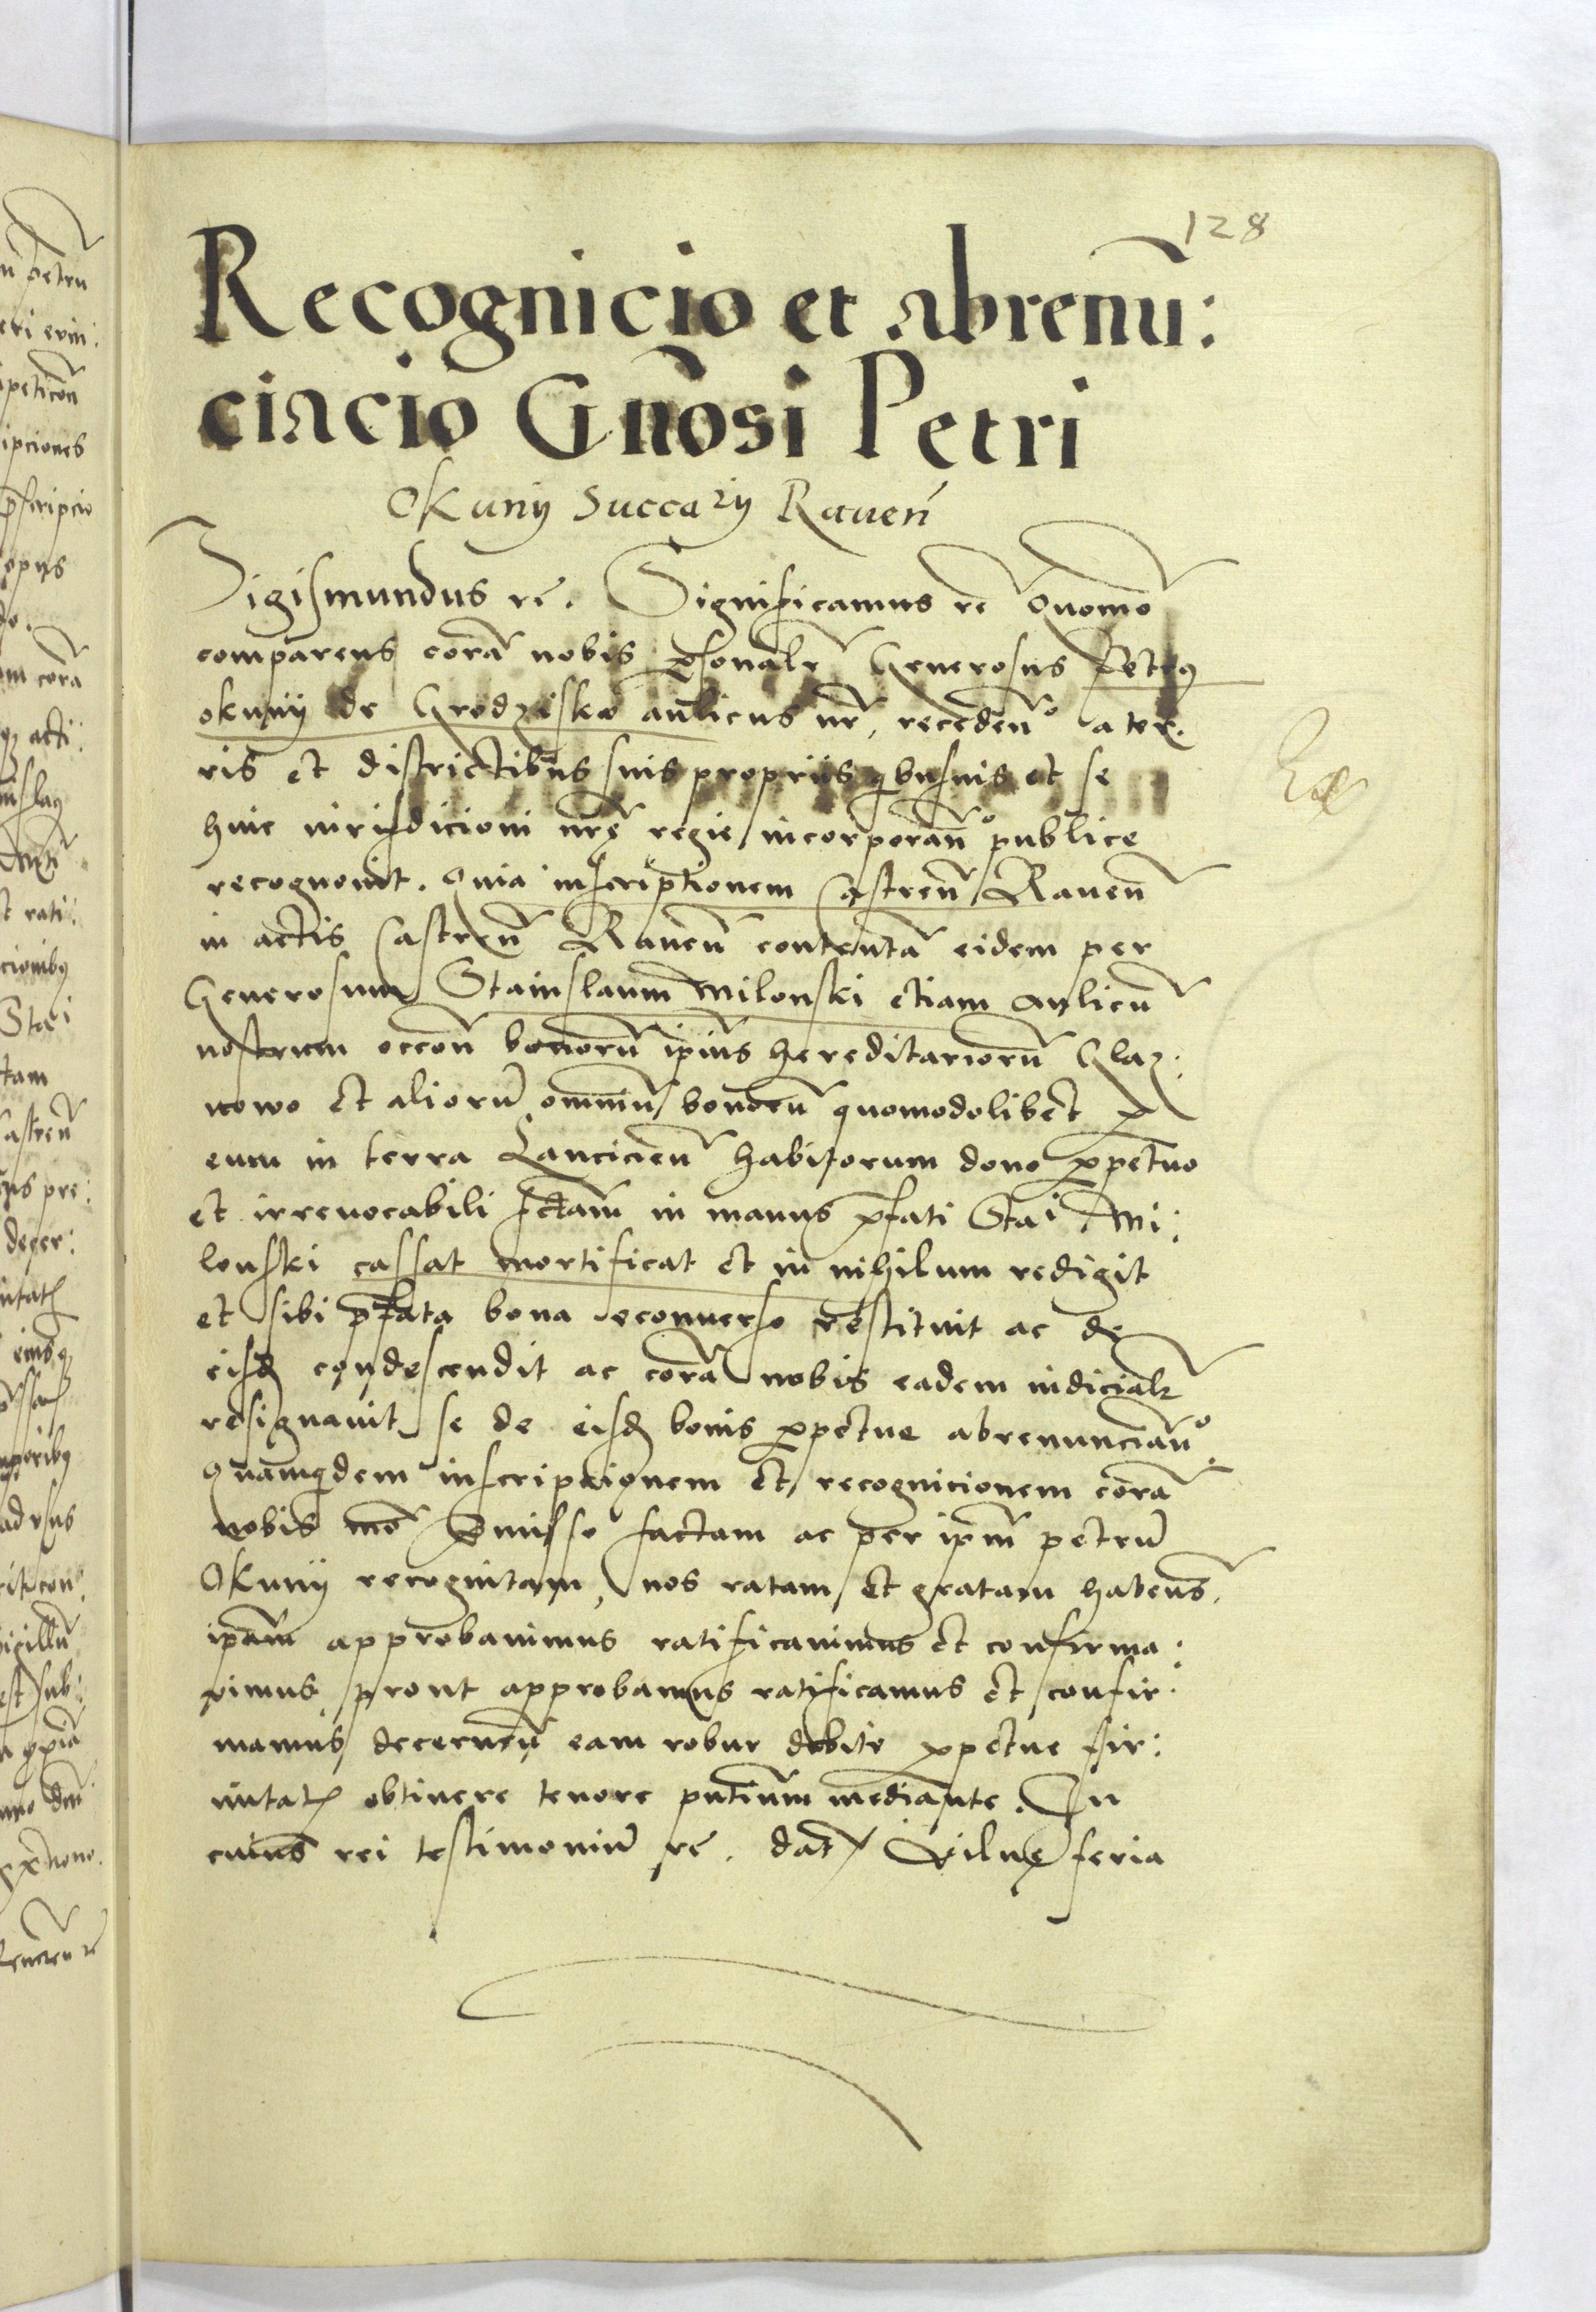 128
Recognicio et abrenu͂:
ciacio Gn͂osi Petri
Okunij Succarij Raueń
Sigismundus rc̄. Significamus rc̄ Quomō
comparens corā nobis p̱sonalr̄ Generosus Petrꝰ
okunij de Grodzisko aulicus nr̄, recedenᵒ a ter.
ris et districtibus suis proprijs qbusuis et se
huic iurisdicioni nrę̄ regie incorporan̄ᵒ publice
recognouit. Quia inscriptionem Castren̄ Rauen̄
in actis Castren̄ Rauen̄ contentā eidem per
Generosum Stanislaum Milonski etiam Aulicū
nostrum occōn bonorū ip̄ius hereditariorū Glaz:
nowo et aliorū omniū bonorū quomodolibet p̱
eum in terra Lancicien̄ habitorum dono p̱petuo
et irreuocabili fctām in manus p̄fati Stai Mi:
lonski cassat mortificat et in nihilum redigit
et sibi p̄fata bona econuerso restituit ac de
eisd condescendit ac corā nobis eadem iudicialr̄
resignauit se de eisd bonis p̱petue abrenuncian̄ᵒ
Quamqdem inscripcionem et recognicionem corā
nobis mō p̄misso factam ac per ipm̄ petrū
Okunij recognitam, nos ratam et gratam haben̄s
ipām approbauimus ratificauimus et confirma:
uimus, prout approbamus ratificamus et confir:
mamus decernen̄ eam robur debite p̱petue fir:
mitatꝭ obtinere tenore pn̄tium mediante. In
cuius rei testimoniū rc̄. datꝭ Vilnę feria